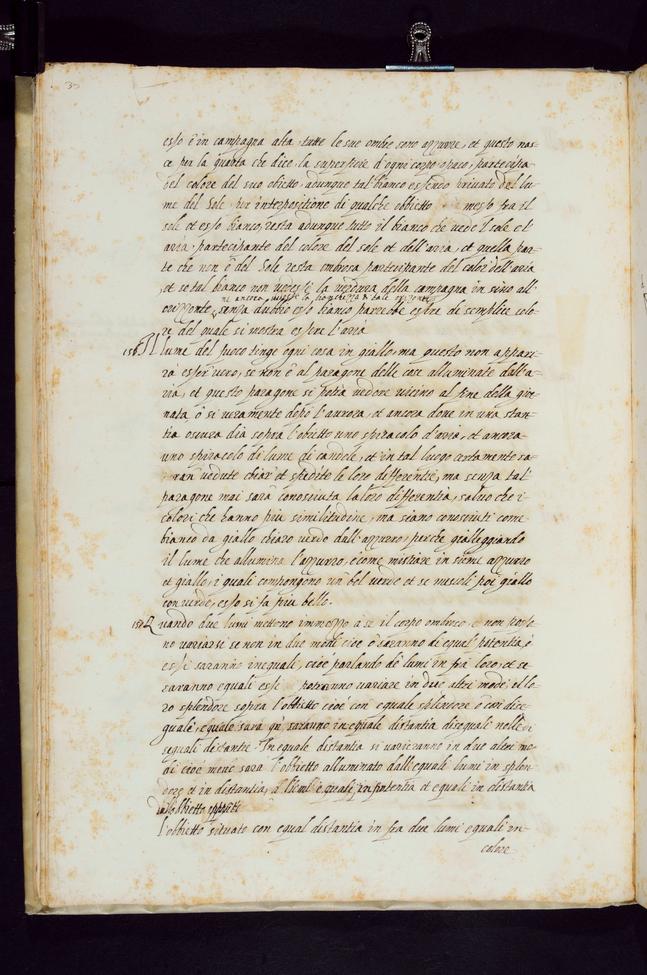 esso è in campagna alta, tutte le sue ombre sono azzurre, et questo nas-
ce per la quarta che dice, la superficie d'ogni corpo opaco, partecipa
del colore del suo obietto, adunque tal bianco essendo privato del lu-
me del Sole per interpositione di qualche obbietto messo fra il
sole et esso bianco, resta adunque tutto il bianco che vede il sole et l'
aria, partecipante del colore del sole et dell'aria, et quella par-
te che non è del Sole resta ombrosa partecipante del color dell'aria
et se tal bianco non vedesse la verdura della campagna in sino all'
ni ancora vedesse la bianchezza di tale orizonte
orizzonte, senza dubbio esso bianco parrebbe essere di semplice colo-
re del quale si mostra essere l'aria
156. Il lume del fuoco tinge ogni cosa in giallo, ma questo non appari-
rà esser vero, se non è al paragone delle cose alluminate dall'a-
ria, et questo paragone si potrà vedere vicino al fine della gior-
nata, ò si veramente dopò l'aurora, et ancora dove in una stan-
tia oscura dia sopra l'obietto uno spiracolo d'aria, et ancora
uno spiracolo di lume di candele, et in tal luogo certamente sa-
ran vedute chiar' et spedite le loro differentie, ma senza tal'
paragone mai sarà conosciuta la loro differentia, salvo che i
colori che hanno più similitudine, ma siano conosciuti come
bianco da giallo chiaro verde dall'azzurro, perche gialleggiando
il lume che allumina l'azzurro, è come mistiare insieme azzurro
et giallo, i quali compongono un bel verde et se mescoli poi giallo
con verde, esso si fa più bello.
157. Quando due lumi mettono immezzo à se il corpo ombroso, e non posso-
no variarsi se non in due modi cioè ò saranno di equal potentia, ò
essi saranno inequali, cioè parlando de lumi in frà loro, et se
saranno equali essi potranno variare in due altri modi il lo-
ro splendore sopra l'obbietto cioè con equale splendore ò con dise-
quale, equale sarà qn saranno in equale distantia disequali nelle di
sequali distantie. In equale distantia si varieranno in due altri mo-
di cioè meno sarà l'obbietto alluminato dalli equali lumi in splen-
dore et in distantia, à lumi equali in potentia et equali in distantia
dallo obietto opposito
l'obbietto situato con equal distantia in fra due lumi equali in
colore